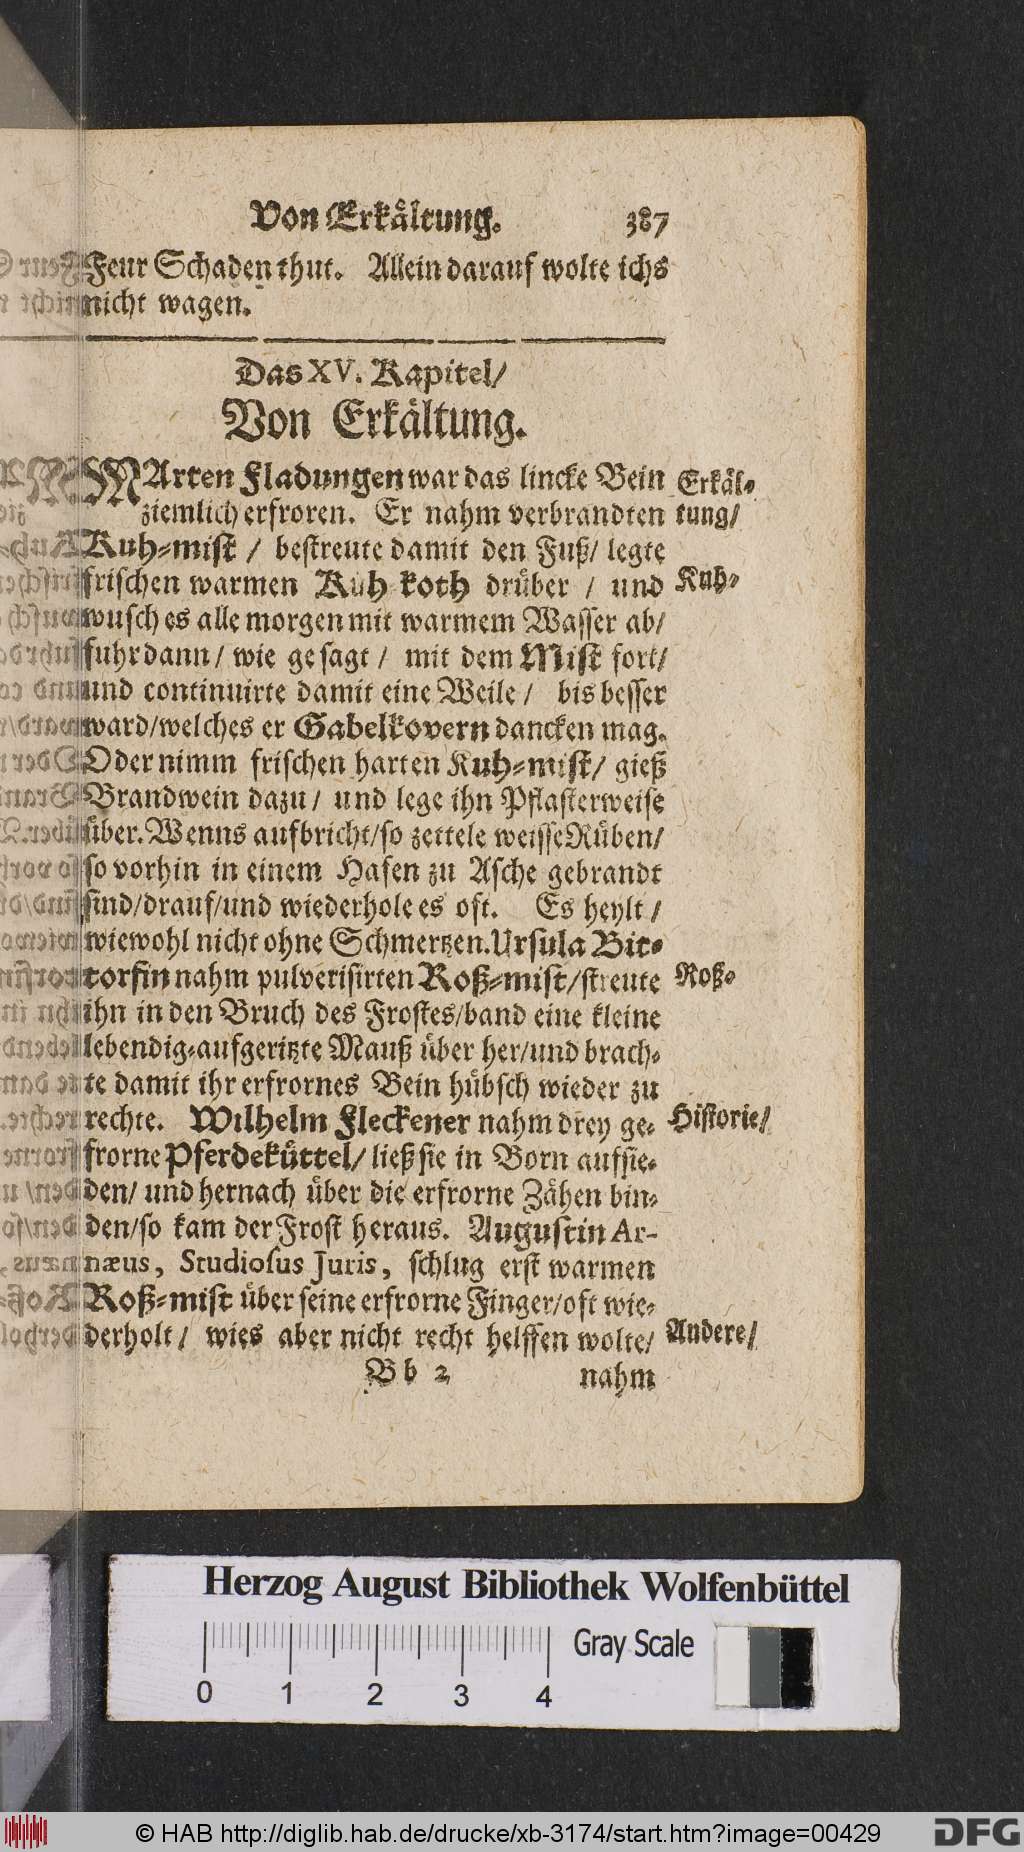 Von Erkältung. 387
Feur Schaden thut. Allein darauf wolte ichs
nicht wagen.
Das XV. Kapitel/
Von Erkältung.
MArten Fladungen war das lincke Bein
ziemlich erfroren. Er nahm verbrandten
Kuh-mist / bestreute damit den Fuß/ legte
frischen warmen Kuh koth drüber / und
wusch es alle morgen mit warmem Wasser ab/
fuhr dann/ wie gesagt / mit dem Mist fort/
und continuirte damit eine Weile / bis besser
ward/welches er Gabelkovern dancken mag.
Oder nimm frischen harten Kuh-mist/ gieß
Brandwein dazu / und lege ihn Pflasterweise
über. Wenns aufbricht/so zettele weisse Rüben/
so vorhin in einem Hafen zu Asche gebrandt
sind/drauf/und wiederhole es oft. Es heylt /
wiewohl nicht ohne Schmertzen. Ursula Bit-
torfin nahm pulverisirten Roß-mist/streute
ihn in den Bruch des Frostes/band eine kleine
lebendig-aufgeritzte Mauß über her/und brach-
te damit ihr erfrornes Bein hübsch wieder zu
rechte. Wilhelm Fleckener nahm drey ge-
frorne Pferdeküttel/ ließ sie in Born aufsie-
den/ und hernach über die erfrorne Zähen bin-
den/so kam der Frost heraus. Augustin Ar-
næus, Studiosus Juris, schlug erst warmen
Roß-mist über seine erfrorne Finger/oft wie-
derholt / wies aber nicht recht helffen wolte/
Bb 2 nahm
Erkäl-
tung/
Kuh-
Roß-
Historie/
Andere/
Herzog August Bibliothek Wolfenbüttel
Gray Scale
0 1 2 3 4
© HAB http://diglib.hab.de/drucke/xb-3174/start.htm?image=00429
DFG